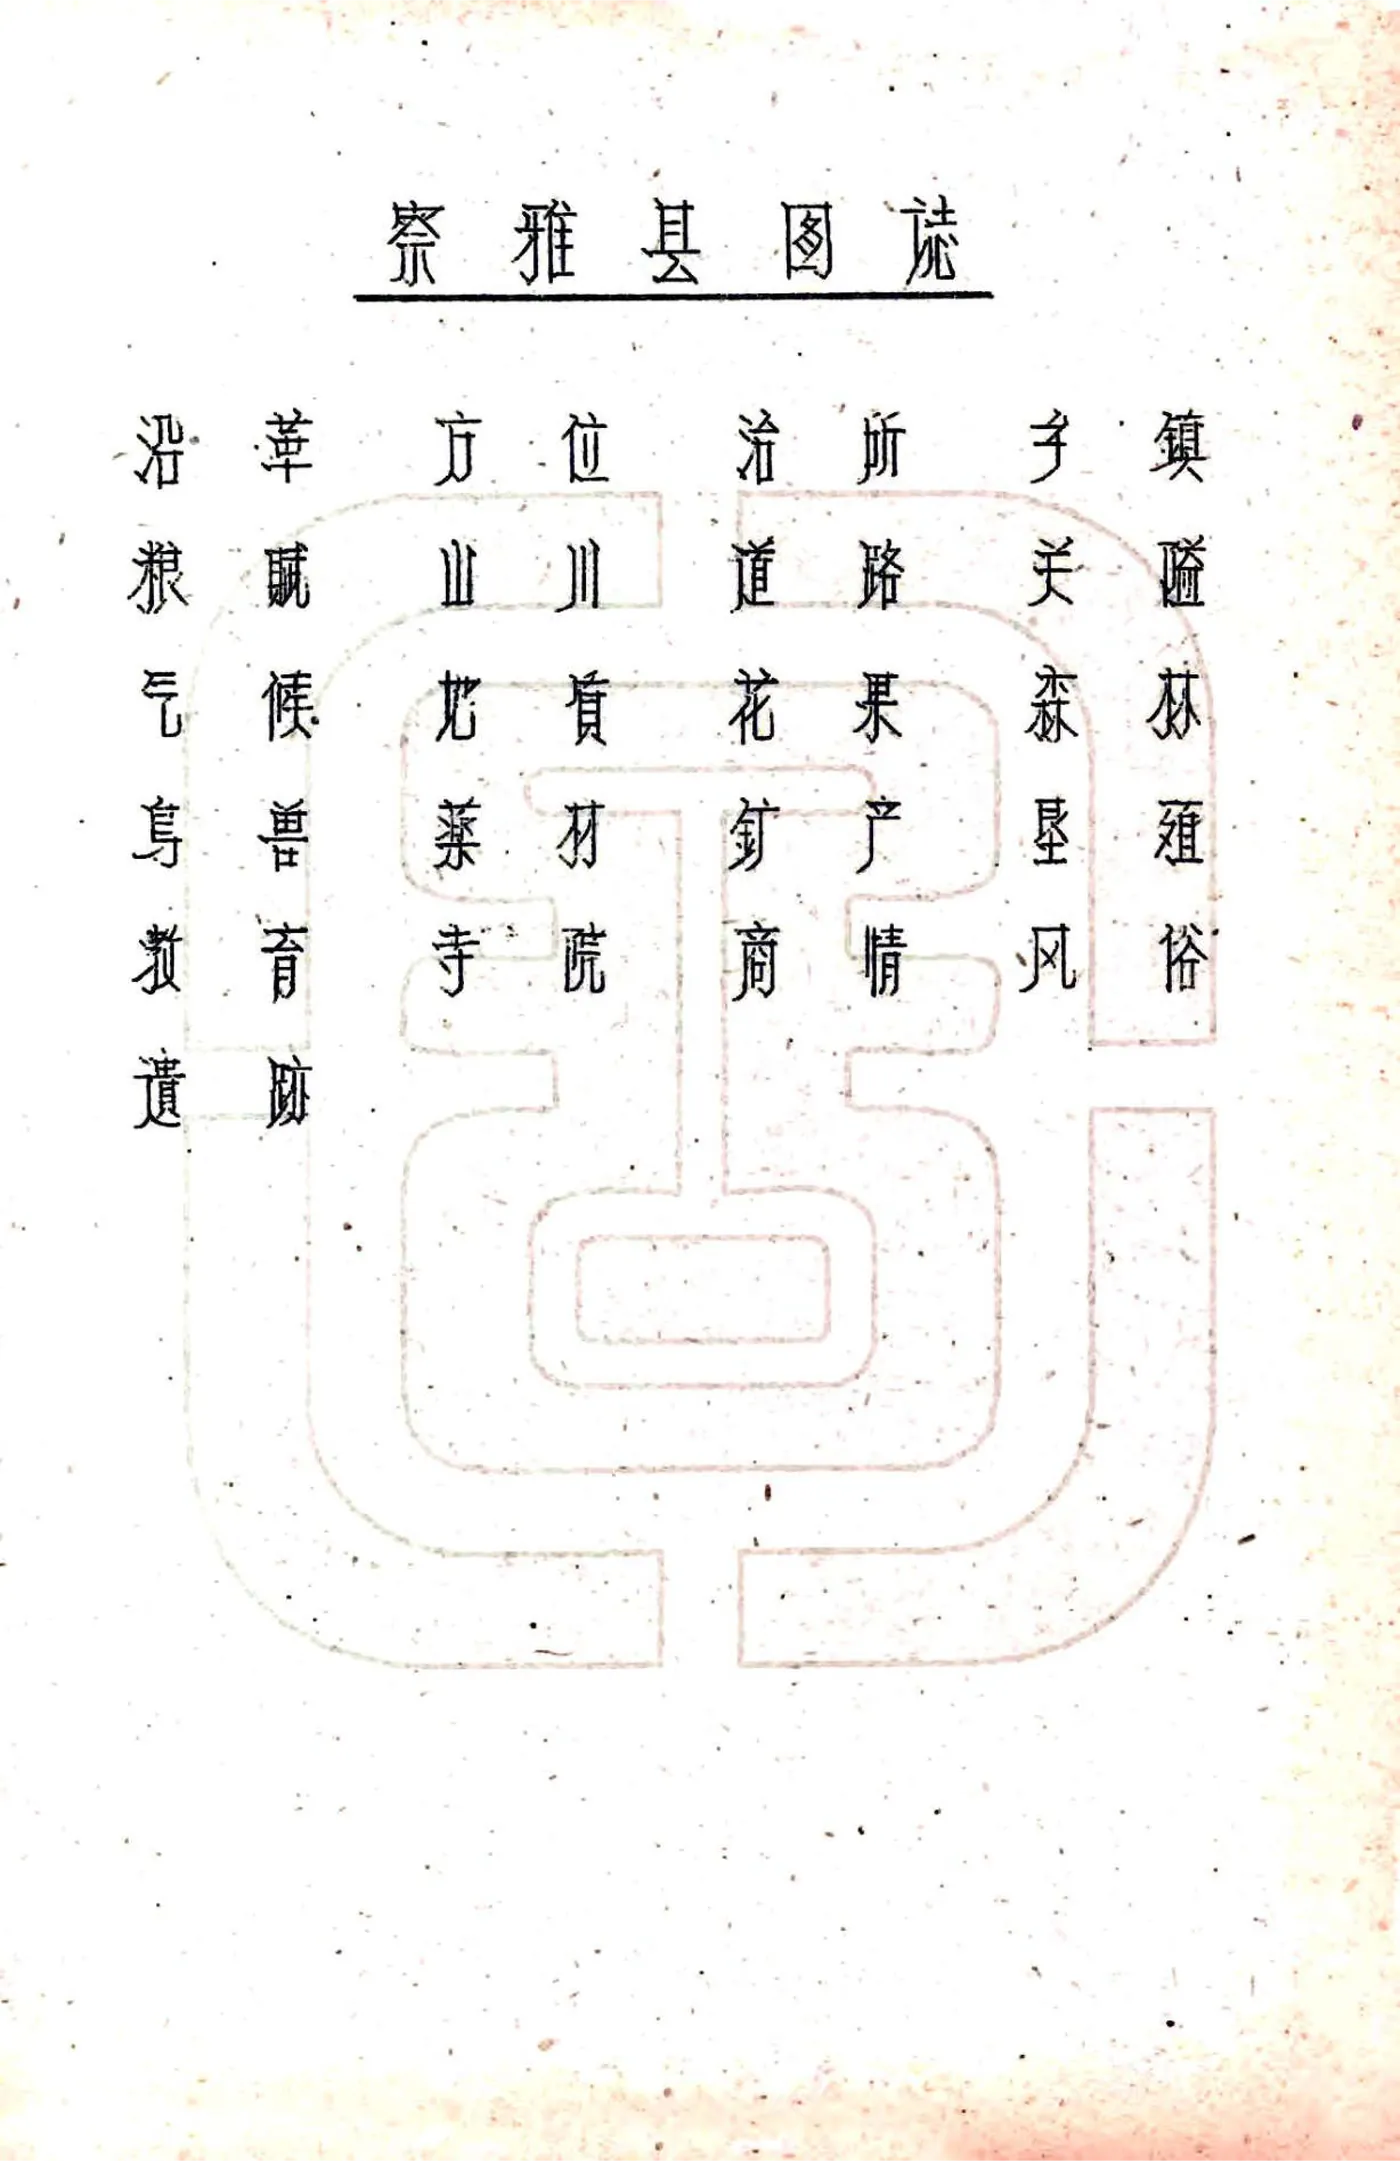 察雅县图誌
沿革 方位 治所 乡鎮
粮賦 山川 道路 关隘
气候 地質 花果 森林
鸟兽 薬材 釒产 垦殖
教育 寺院 商情 风俗
遺跡